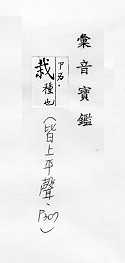 彙音寶鑑
栽 種也
(皆上平聲、P307)